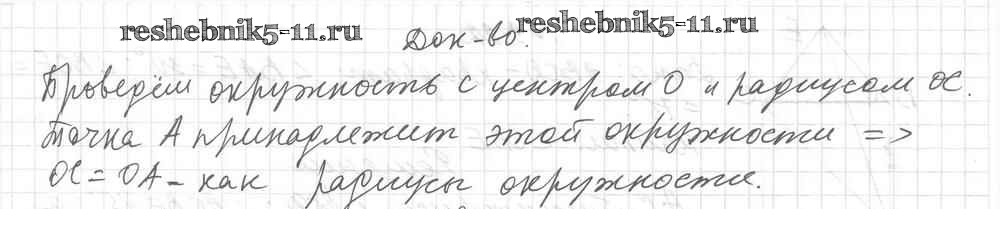 reshebnik5-11.ru reshebnik5-11.ru
Док-во.
Проведём окружность с центром О и радиусом ОС.
Точка А принадлежит этой окружности =>
ОС = ОА - как радиусы окружности.